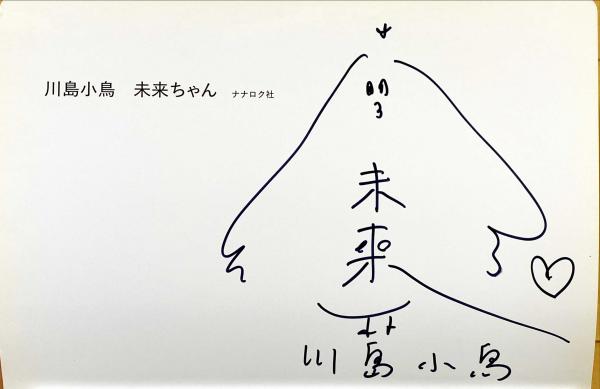 川島小鳥 未来ちゃん ナナロク社
未
来
川島小鳥